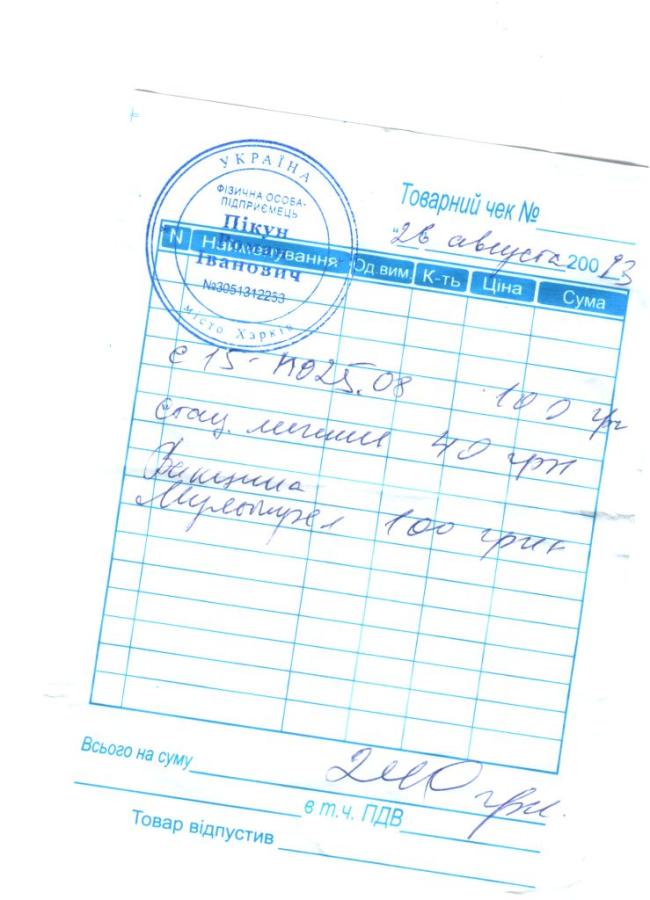 УКРАЇНА
ФІЗИЧНА ОСОБА-
ПІДПРИЄМЕЦЬ
Пікун
Іванович
№3051312253
місто Харків
Товарний чек №
"26 августа 200 13
N Найменування Од.вим. К-ть Ціна Сума
с 15 - по 25.08 100 гр
стац. лечение 40 грн
Вакцина
Мультифел 100 грн
Всього на суму 240 грн.
в т.ч. ПДВ
Товар відпустив